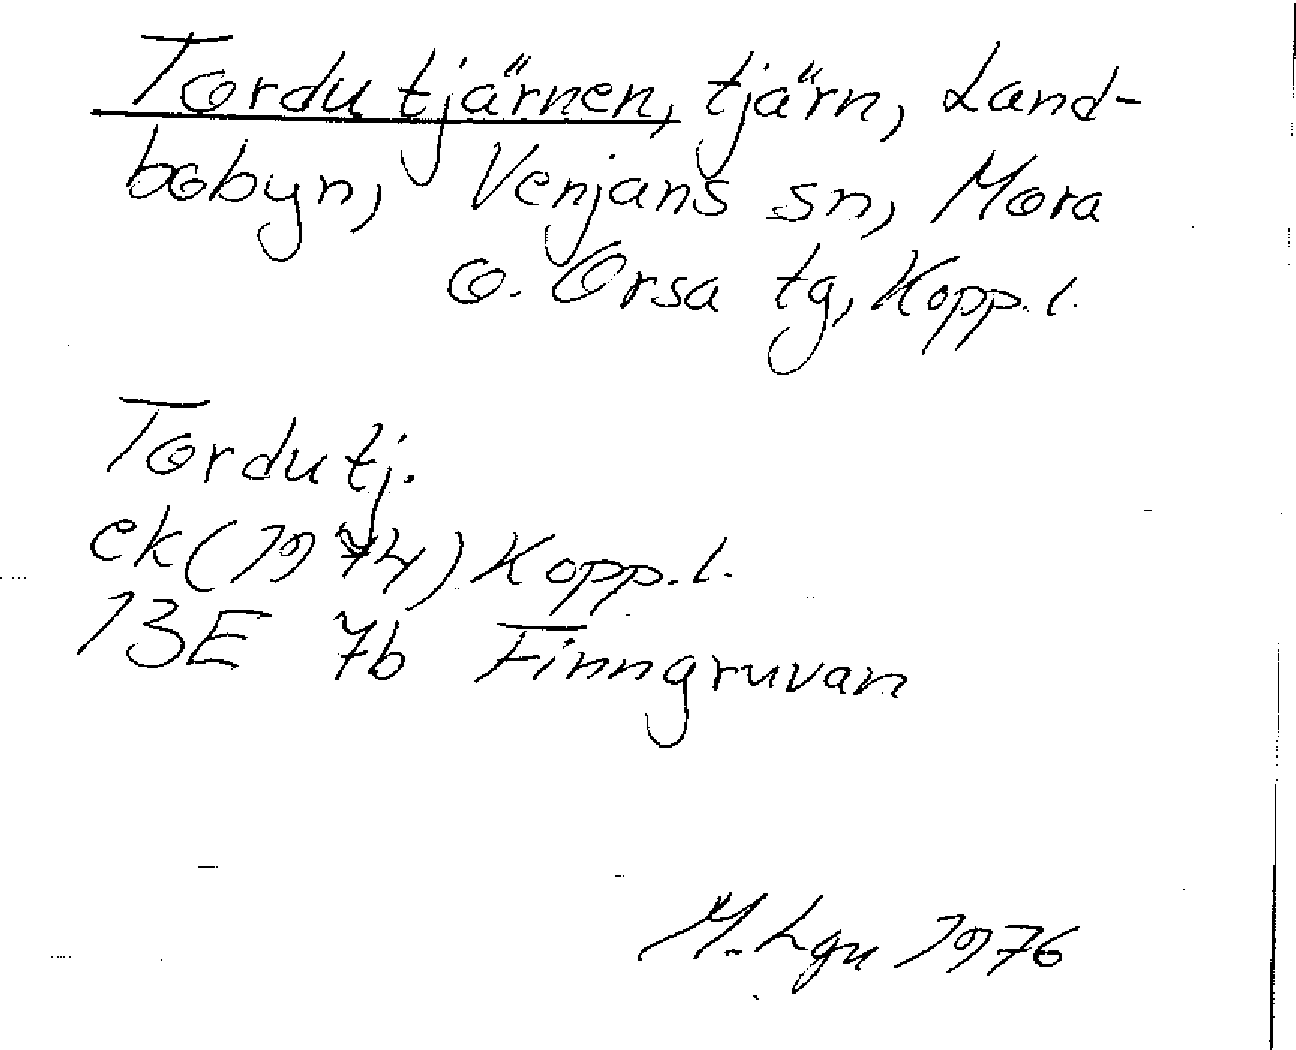 Tordutjärnen, tjärn, Land-
bobyn, Venjans sn, Mora
o. Orsa tg, Kopp. l.
Tordutj.
ek (1974) Kopp. l.
13E 7b Finngruvan
M. Lgn 1976